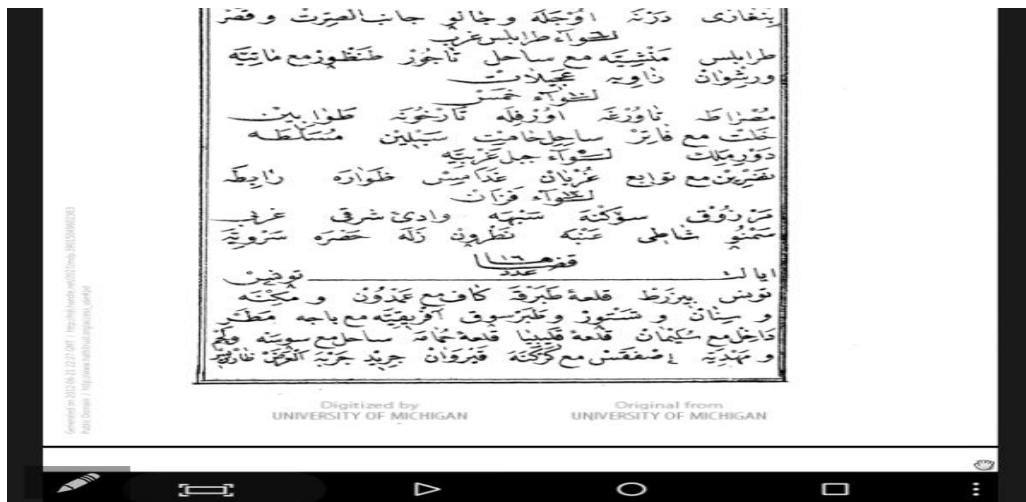 بنغازى درنه اوجله و جالو جانب الصرت و قصر
لواء طرابلس غرب
طرابلس منشيه مع ساحل تاجور طنظور مع ماتيه
ورشوان زاويه عجيلات
لواء خمس
مصراطه تاورغه اورفله تارخونه
خلت مع فاتر ساحل خامت سبلين مسلطه
دورملت لواء جبل غربيه
نفزين مع توابع غريان غدامس ظواره رابطه
لواء فزان
مرزوق سوكنه سبهه وادئ شرقى غربى
سمنو شاطى عنبه نطرون زله حضره سروتيه
قضاها
عدد ١٦
ايالت تونس
تونس بيزرط قلعۀ طبرقه كاف مع عمدون و مكنه
و سنان و شستوز و طبرسوق افريقيه مع باجه مطر
داخل مع سكيمان قلعۀ قليبيا قلعۀ حمامه ساحل مع سوسه
و مهديه صفقس مع كركنه قيروان جريد جربه
Digitized by
UNIVERSITY OF MICHIGAN
Original from
UNIVERSITY OF MICHIGAN